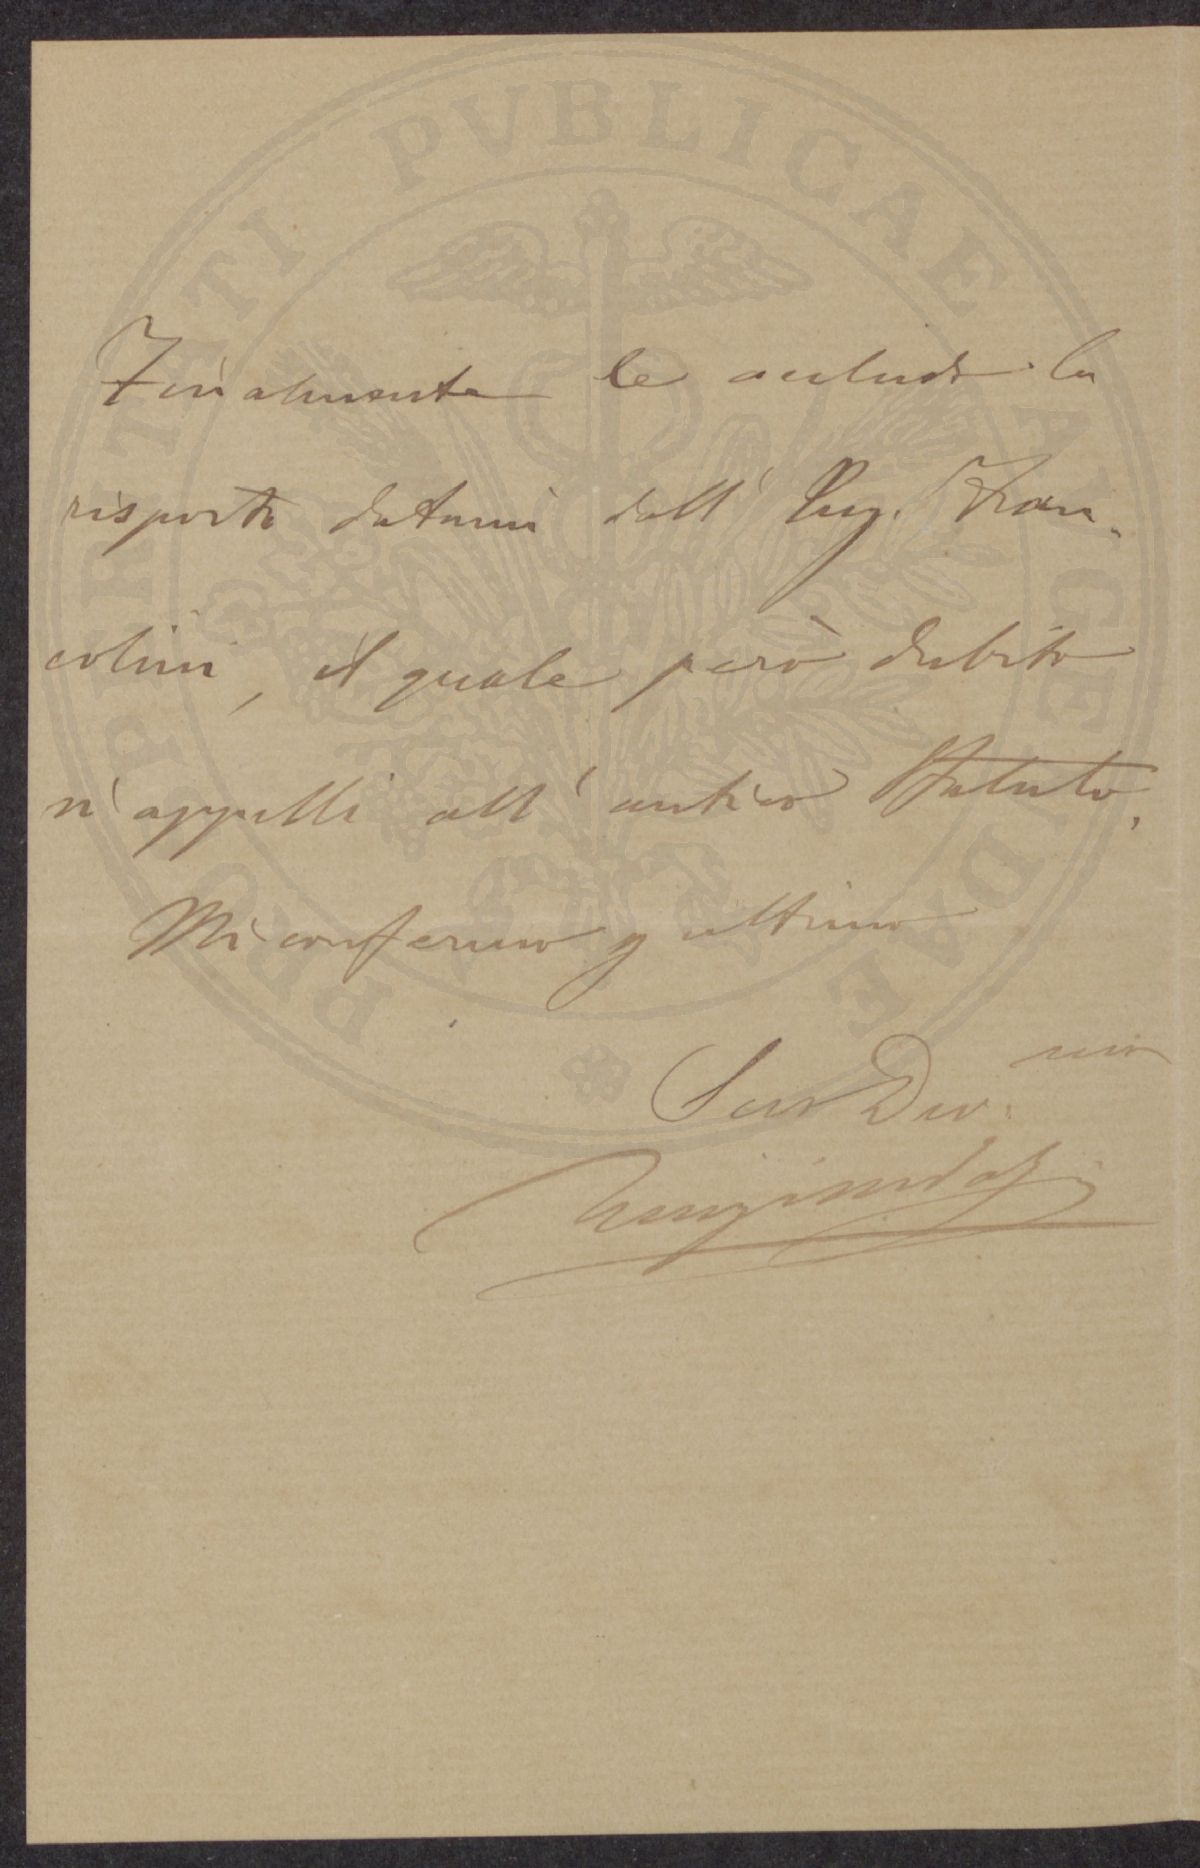 PROSPERITATI PVBLICAE AVGENDAE
Finalmente le acclude la
risposta datami dall' Ing. Fran-
colini, il quale però dubito
s'appelli all' antico Statuto.
Mi confermo
Suo Dev. mo